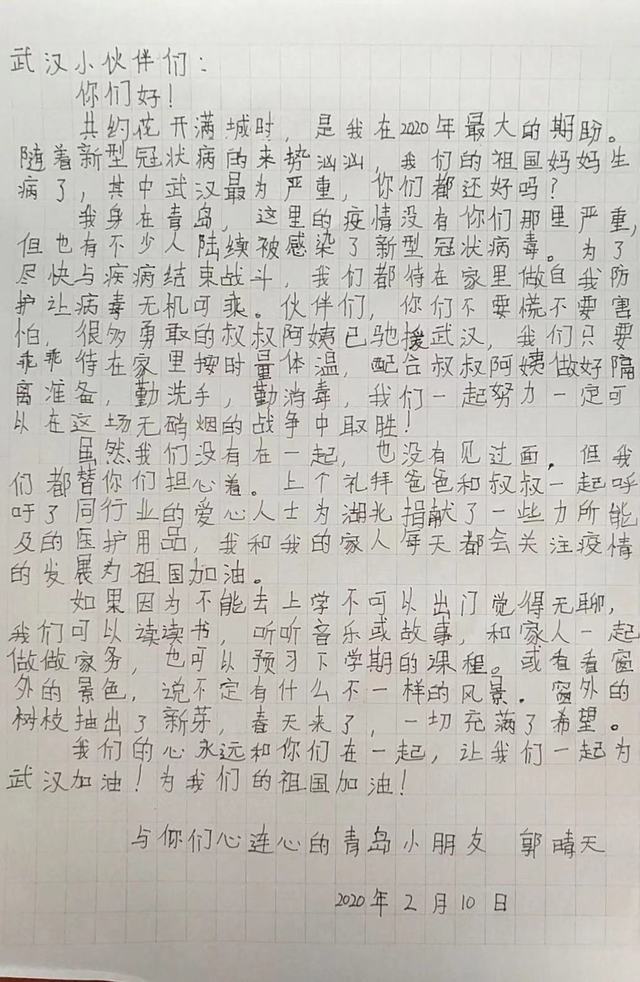 武汉小伙伴们：
你们好！
共约花开满城时，是我在2020年最大的期盼。
随着新型冠状病的来势汹汹，我们的祖国妈妈生
病了，其中武汉最为严重，你们都还好吗？
我身在青岛，这里的疫情没有你们那里严重，
但也有不少人陆续被感染了新型冠状病毒。为了
尽快与疾病结束战斗，我们都待在家里做自我防
护让病毒无机可乘。伙伴们，你们不要慌不要害
怕，很多勇敢的叔叔阿姨已驰援武汉，我们只要
乖乖待在家里按时量体温，配合叔叔阿姨做好隔
离准备，勤洗手，勤消毒，我们一起努力一定可
以在这场无硝烟的战争中取胜！
虽然我们没有在一起，也没有见过面，但我
们都替你们担心着。上个礼拜爸爸和叔叔一起呼
吁了同行业的爱心人士为湖北捐献了一些力所能
及的医护用品，我和我的家人每天都会关注疫情
的发展为祖国加油。
如果因为不能去上学不可以出门觉得无聊，
我们可以读读书，听听音乐或故事，和家人一起
做做家务，也可以预习下学期的课程。或看看窗
外的景色，说不定有什么不一样的风景。窗外的
树枝抽出了新芽，春天来了，一切充满了希望。
我们的心永远和你们在一起，让我们一起为
武汉加油！为我们的祖国加油！
与你们心连心的青岛小朋友 郭晴天
2020年2月10日